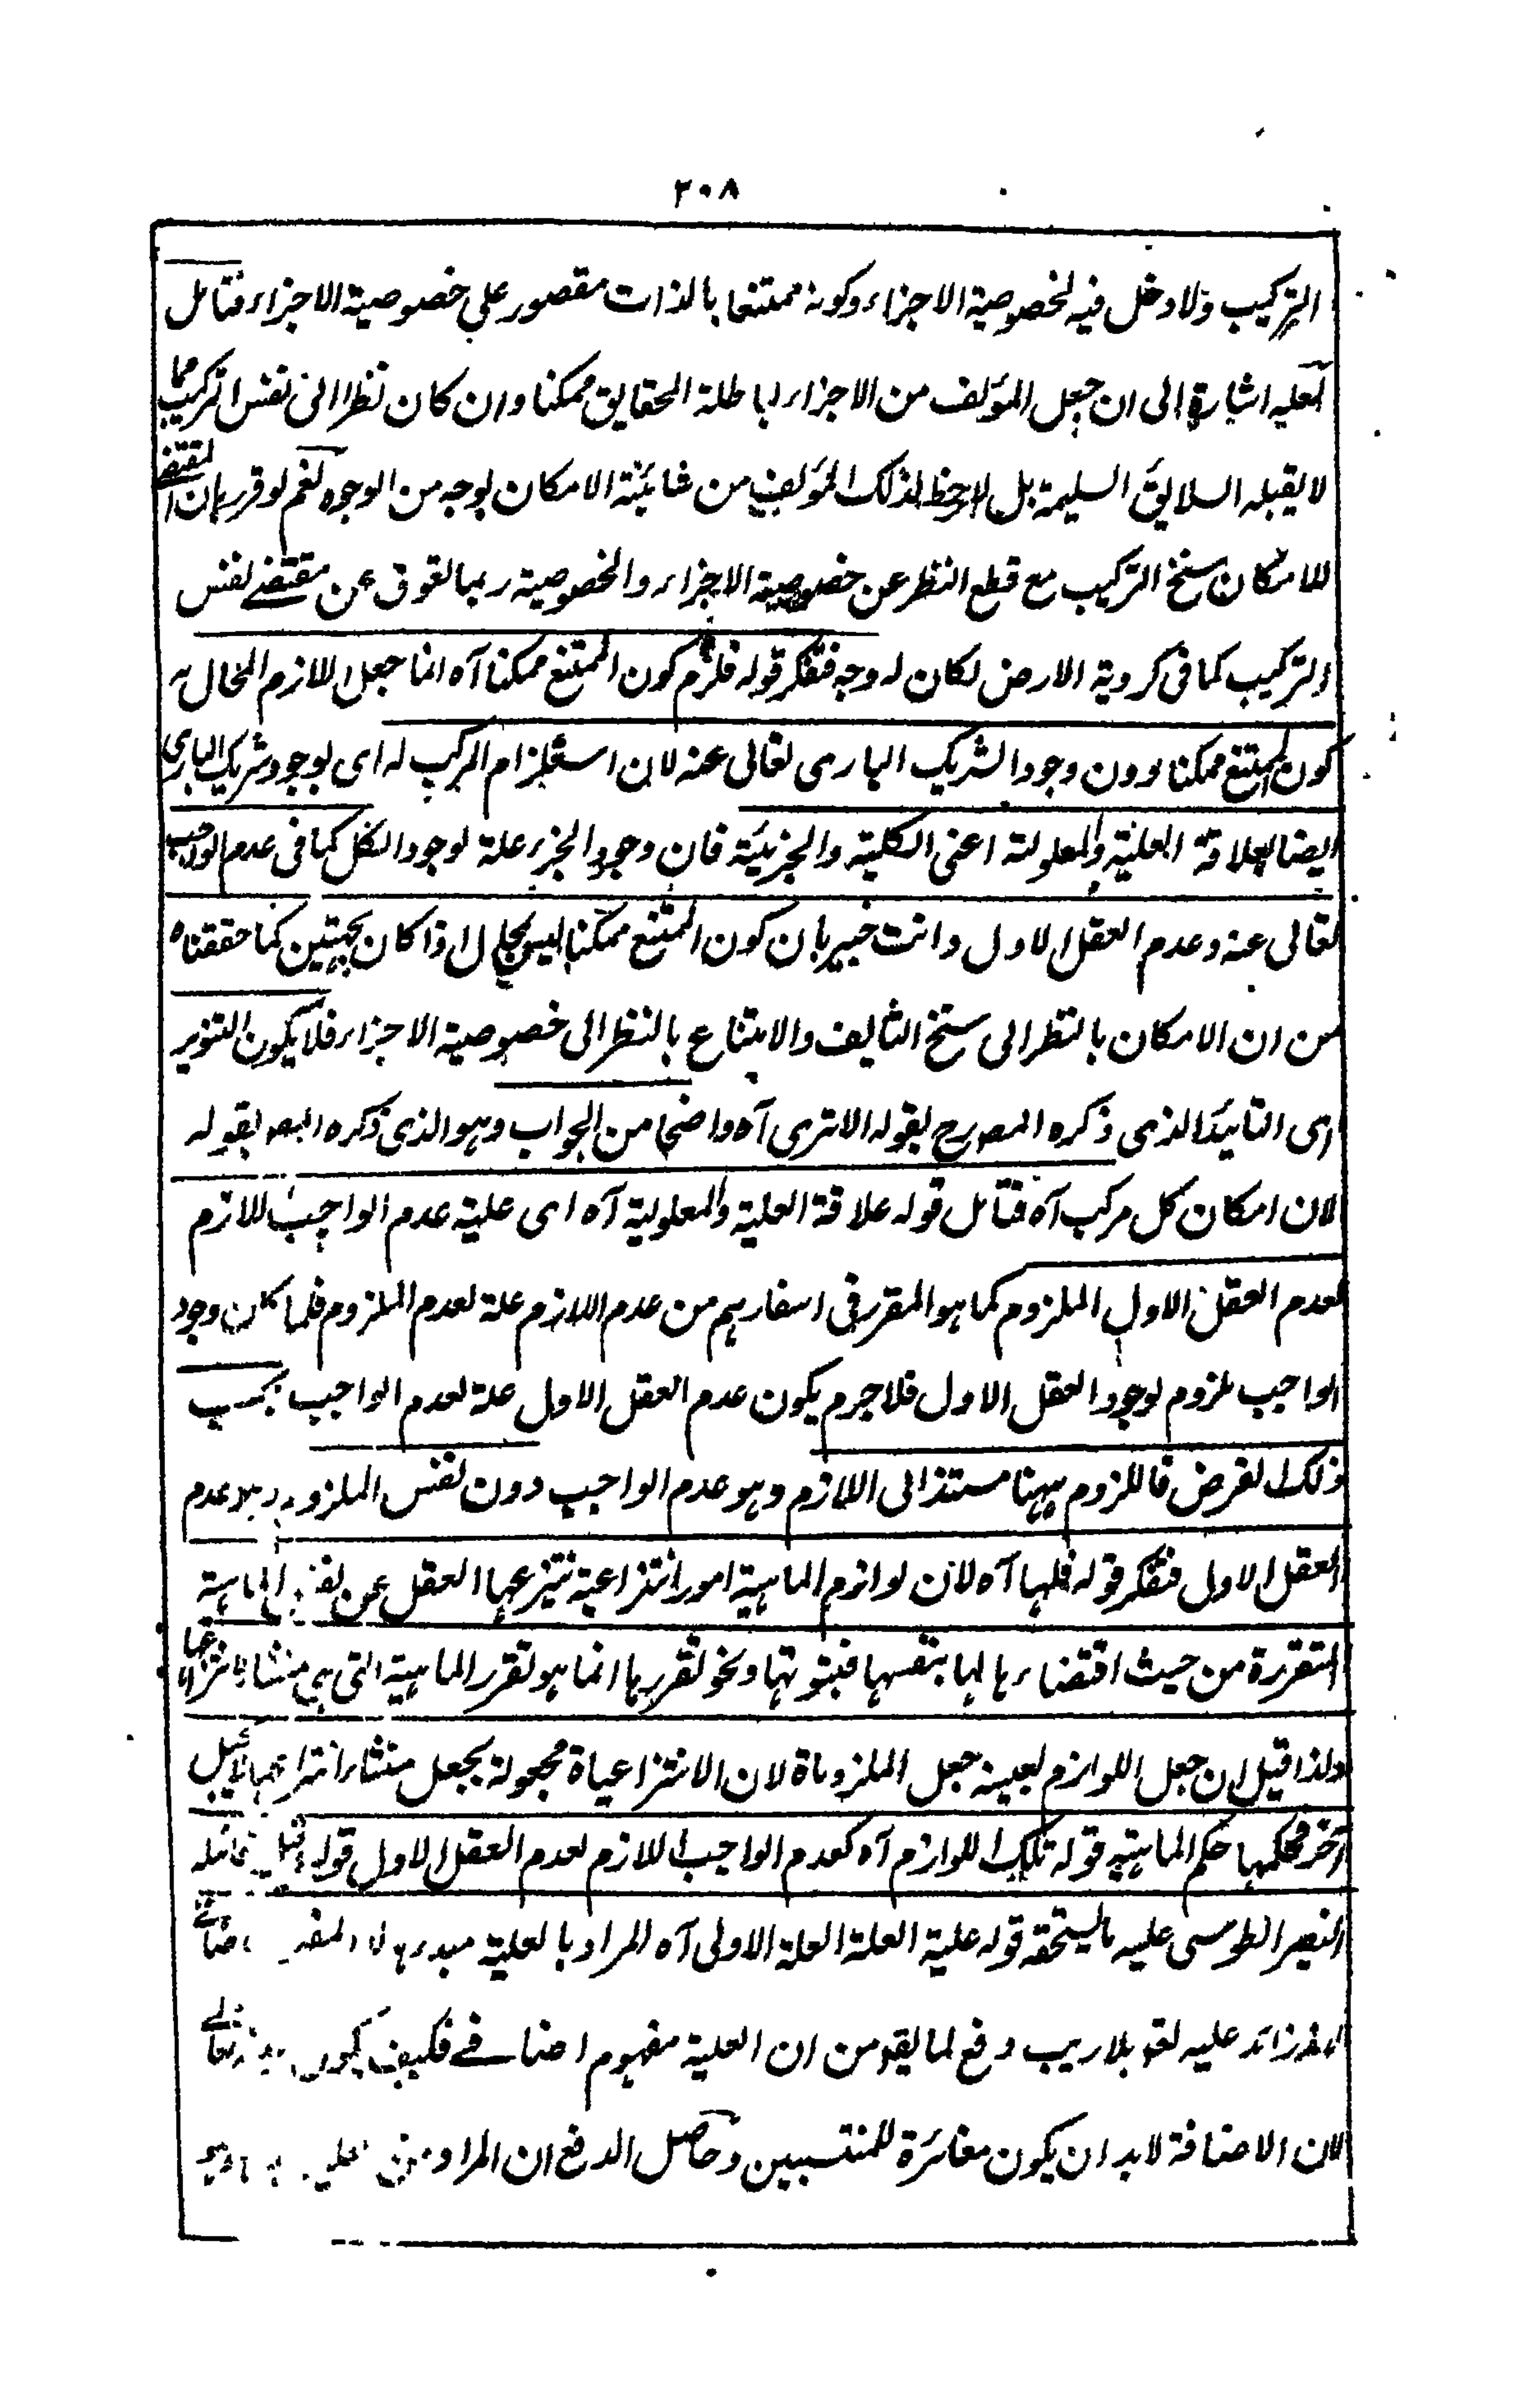 ٢٠٨
التركيب ولا دخل فيه لخصوصية الاجزاء وكونه ممتنعا بالذات مقصور على خصوصية الاجزاء فتامل
لعله اشارة الى ان جعل المؤلف من الاجزاء الباطلة الحقايق ممكنا وان كان نظرا الى نفس التركيب مما
لا يقبله السلايق السليمة بل لا حظ لذلك المؤلف من شائبة الامكان بوجه من الوجوه نعم لو قرر بان المقتضى
للامكان سنخ التركيب مع قطع النظر عن خصوصية الاجزاء والخصوصية ربما تعوق عن مقتضى نفس
التركيب كما فى كروية الارض لكان له وجه فتفكر قوله فلزم كون الممتنع ممكنا آه انما جعل اللازم المحال
كون الممتنع ممكنا دون وجود الشريك البارى تعالى عنه لان استلزام المركب له اى لوجود شريك البارى
ايضا لعلاقة العلية والمعلولية اعنى الكلية والجزئية فان وجود الجزء علة لوجود الكل كما فى عدم الواجب
تعالى عنه وعدم العقل الاول وانت خبير بان كون الممتنع ممكنا ليس بمحال اذا كان بجهتين كما حققناه
من ان الامكان بالنظر الى سنخ التاليف والامتناع بالنظر الى خصوصية الاجزاء فلا يكون التنوير
اى التائيد الذى ذكره المص رح بقوله الا ترى آه واضحا من الجواب وهو الذى ذكره المص بقوله
لان امكان كل مركب آه فتامل قوله علاقة العلية والمعلولية آه اى علية عدم الواجب اللازم
لعدم العقل الاول الملزوم كما هو المقرر فى اسفارهم من عدم اللازم علة لعدم الملزوم فلما كان وجود
الواجب ملزوم لوجود العقل الاول فلا جرم يكون عدم العقل الاول علة لعدم الواجب بحسب
ذلك الفرض فاللزوم ههنا مستند الى اللازم وهو عدم الواجب دون نفس الملزوم وهو عدم
العقل الاول فتفكر قوله فلها آه لان لوازم الماهية امور انتزاعية ينتزعها العقل عن نفس الماهية
المتقررة من حيث اقتضاءها لها بنفسها فثبوتها ونحو تقررها انما هو تقرر الماهية التى هى منشاء انتزاعها
ولذا قيل ان جعل اللوازم بعينه جعل الملزومات لان الانتزاعيات مجعولة بجعل منشاء انتزاعها لا بجعل
آخر فحكمها حكم الماهية قوله تلك اللوازم آه كعدم الواجب اللازم لعدم العقل الاول قوله قيل قائله
النصير الطوسى عليه ما يستحقه قوله علية العلة الاولى آه المراد بالعلية مبدءها لا المفهوم الاضافى
لانه زائد عليه تعالى بلا ريب دفع لما يتوهم من ان العلية مفهوم اضافى فكيف يكون
لان الاضافة لا بد ان يكون مغائرة للمنتسبين وحاصل الدفع ان المراد من العلية